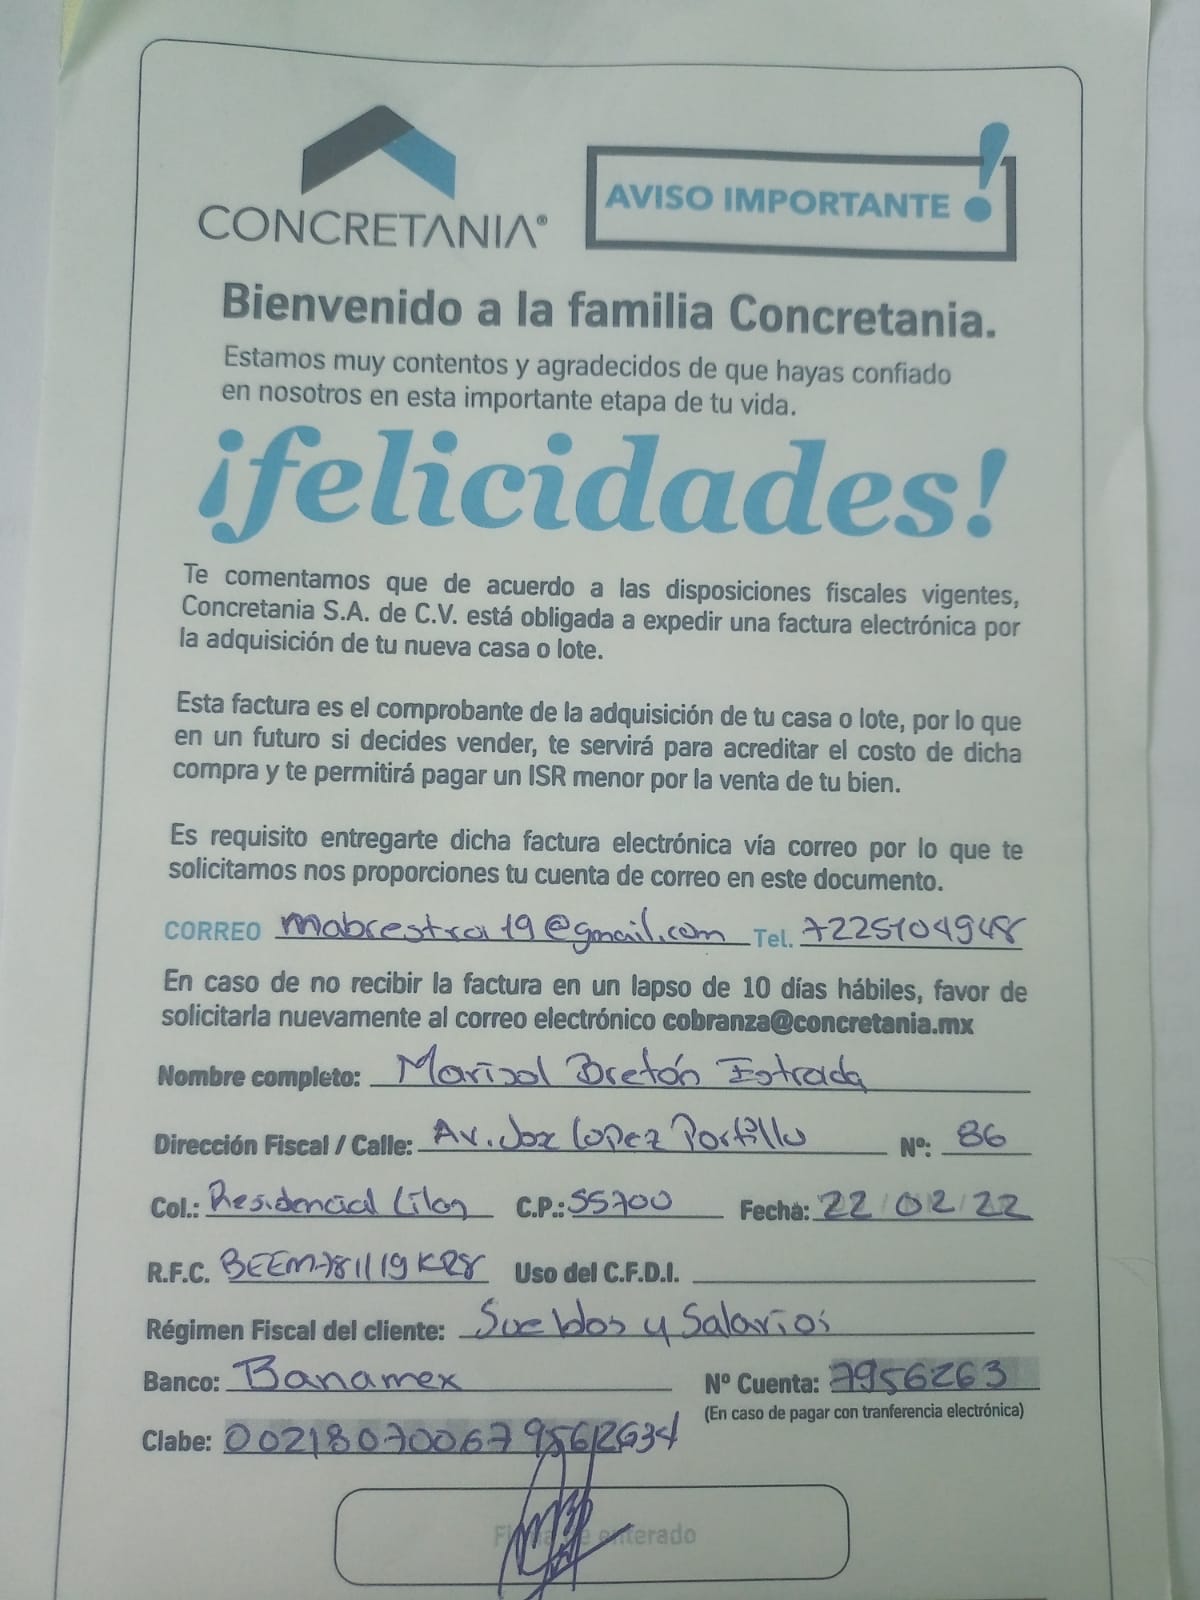 CONCRETANIA®
AVISO IMPORTANTE !
Bienvenido a la familia Concretania.
Estamos muy contentos y agradecidos de que hayas confiado
en nosotros en esta importante etapa de tu vida.
¡felicidades!
Te comentamos que de acuerdo a las disposiciones fiscales vigentes,
Concretania S.A. de C.V. está obligada a expedir una factura electrónica por
la adquisición de tu nueva casa o lote.
Esta factura es el comprobante de la adquisición de tu casa o lote, por lo que
en un futuro si decides vender, te servirá para acreditar el costo de dicha
compra y te permitirá pagar un ISR menor por la venta de tu bien.
Es requisito entregarte dicha factura electrónica vía correo por lo que te
solicitamos nos proporciones tu cuenta de correo en este documento.
CORREO mabrestra19@gmail.com Tel. 7225104948
En caso de no recibir la factura en un lapso de 10 días hábiles, favor de
solicitarla nuevamente al correo electrónico cobranza@concretania.mx
Nombre completo: Marisol Bretón Estrada
Dirección Fiscal / Calle: Av. Jose Lopez Portillo Nº: 86
Col.: Residencial Lilas C.P.: 55700 Fecha: 22/02/22
R.F.C. BEEM781119KR8 Uso del C.F.D.I.
Régimen Fiscal del cliente: Sueldos y Salarios
Banco: Banamex Nº Cuenta: 7956263
(En caso de pagar con tranferencia electrónica)
Clabe: 002180700679562634
enterado